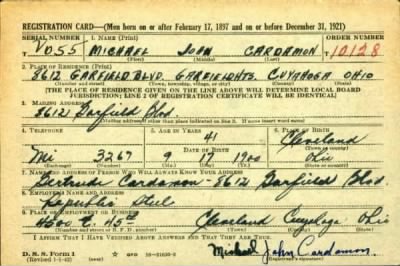 REGISTRATION CARD—(Men born on or after February 17, 1897 and on or before December 31, 1921)
SERIAL NUMBER 1. NAME (Print) ORDER NUMBER
V055 MICHAEL JOHN CARDAMON 10128
(First) (Middle) (Last)
2. PLACE OF RESIDENCE (Print)
8612 GARFIELD BLVD. GARFIELD HTS. CUYAHOGA OHIO
(Number and street) (Town, township, village, or city) (County) (State)
[THE PLACE OF RESIDENCE GIVEN ON THE LINE ABOVE WILL DETERMINE LOCAL BOARD
JURISDICTION; LINE 2 OF REGISTRATION CERTIFICATE WILL BE IDENTICAL]
3. MAILING ADDRESS
8612 Garfield Blvd.
[Mailing address if other than place indicated on line 2. If same insert word same]
4. TELEPHONE 5. AGE IN YEARS 6. PLACE OF BIRTH
41 Cleveland
DATE OF BIRTH (Town or county)
Mi 3267 9 17 1900 Ohio
(Exchange) (Number) (Mo.) (Day) (Yr.) (State or country)
7. NAME AND ADDRESS OF PERSON WHO WILL ALWAYS KNOW YOUR ADDRESS
Gertrude Cardamon - 8612 Garfield Blvd.
8. EMPLOYER'S NAME AND ADDRESS
Republic Steel
9. PLACE OF EMPLOYMENT OR BUSINESS
E. 45 Cleveland Cuyahoga Ohio
(Number and street or R. F. D. number) (Town) (County) (State)
I AFFIRM THAT I HAVE VERIFIED ABOVE ANSWERS AND THAT THEY ARE TRUE.
D. S. S. Form 1
(Revised 1-1-42) GPO 16—21630-2 Michael John Cardamon
(Registrant's signature)